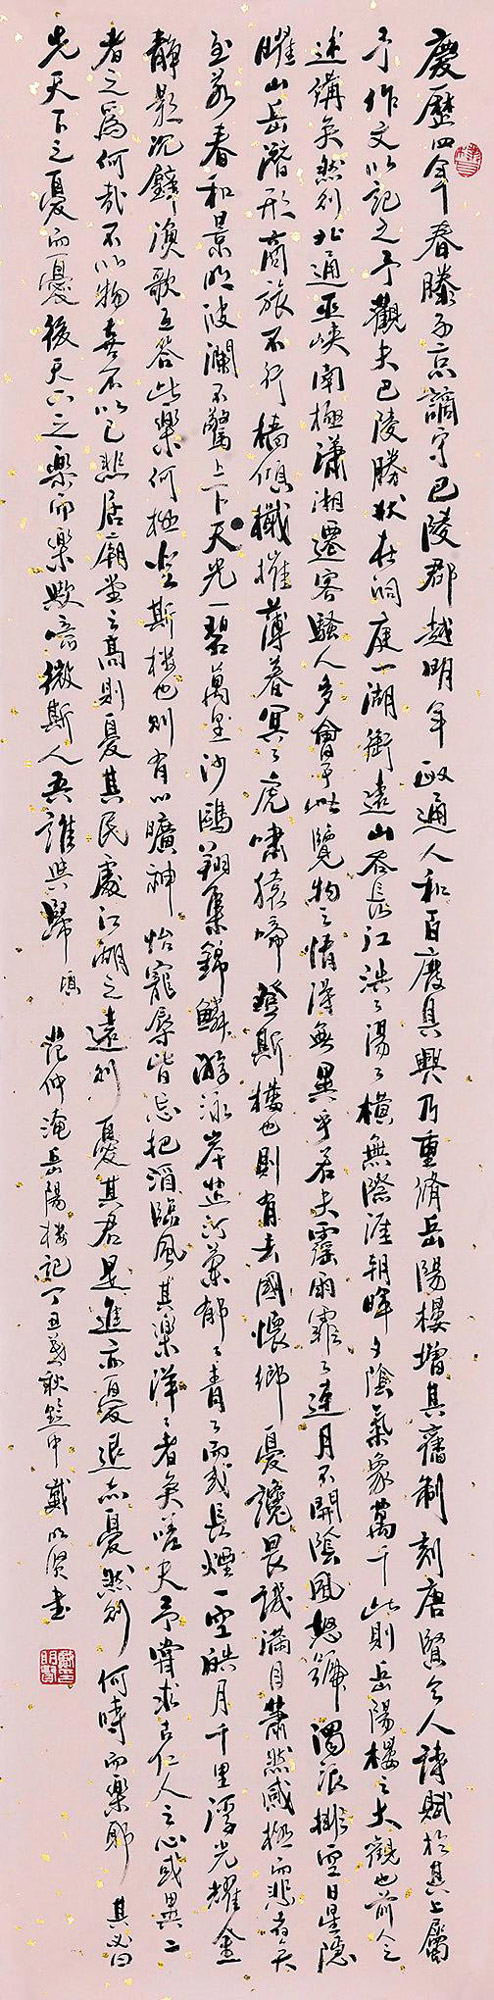 慶曆四年春滕子京謫守巴陵郡越明年政通人和百廢具興乃重脩岳陽樓增其舊制刻唐賢今人詩賦於其上屬
予作文以記之予觀夫巴陵勝狀在洞庭一湖銜遠山吞長江浩〻湯〻橫無際涯朝暉夕陰氣象萬千此則岳陽樓之大觀也前人之
述備矣然則北通巫峽南極瀟湘遷客騷人多會于此覽物之情得無異乎若夫霪雨霏〻連月不開陰風怒號濁浪排空日星隱
曜山岳潛形商旅不行檣傾檝摧薄暮冥〻虎嘯猿啼登斯樓也則有去國懷鄉憂讒畏譏滿目蕭然感極而悲者矣
至若春和景明波瀾不驚上下天光一碧萬里沙鷗翔集錦鱗游泳岸芷汀蘭郁〻青〻而或長煙一空皓月千里浮光耀金
靜影沉璧漁歌互答此樂何極登斯樓也則有心曠神怡寵辱皆忘把酒臨風其樂洋〻者矣嗟夫予嘗求古仁人之心或異二
者之為何哉不以物喜不以己悲居廟堂之高則憂其民處江湖之遠則憂其君是進亦憂退亦憂然則何時而樂耶其必曰
先天下之憂而憂後天下之樂而樂歟噫微斯人吾誰與歸 范仲淹岳陽樓記丁丑 戴明賢書